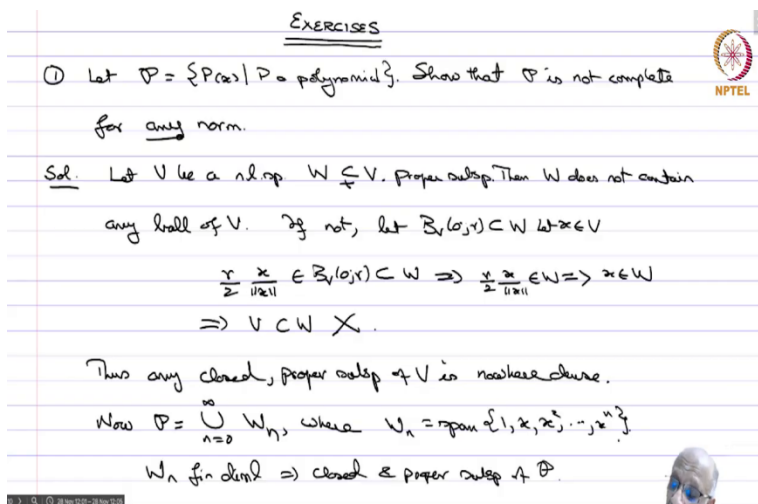 EXERCISES
① Let 𝒫 = {P(x) | P a polynomial}. Show that 𝒫 is not complete
NPTEL
for any norm.
Sol. Let V be a n.l.sp. W ⊊ V. Proper subsp. Then W does not contain
any ball of V. If not, let B_V(0;r) ⊂ W Let x ∈ V
r/2 x/||x|| ∈ B_V(0;r) ⊂ W ⇒ r/2 x/||x|| ∈ W ⇒ x ∈ W
⇒ V ⊂ W X.
Thus any closed, proper subsp of V is nowhere dense.
Now 𝒫 = ∞ ⋃ n=0 W_n, where W_n = span {1, x, x², ..., xⁿ}
W_n fin diml ⇒ closed & proper subsp of 𝒫.